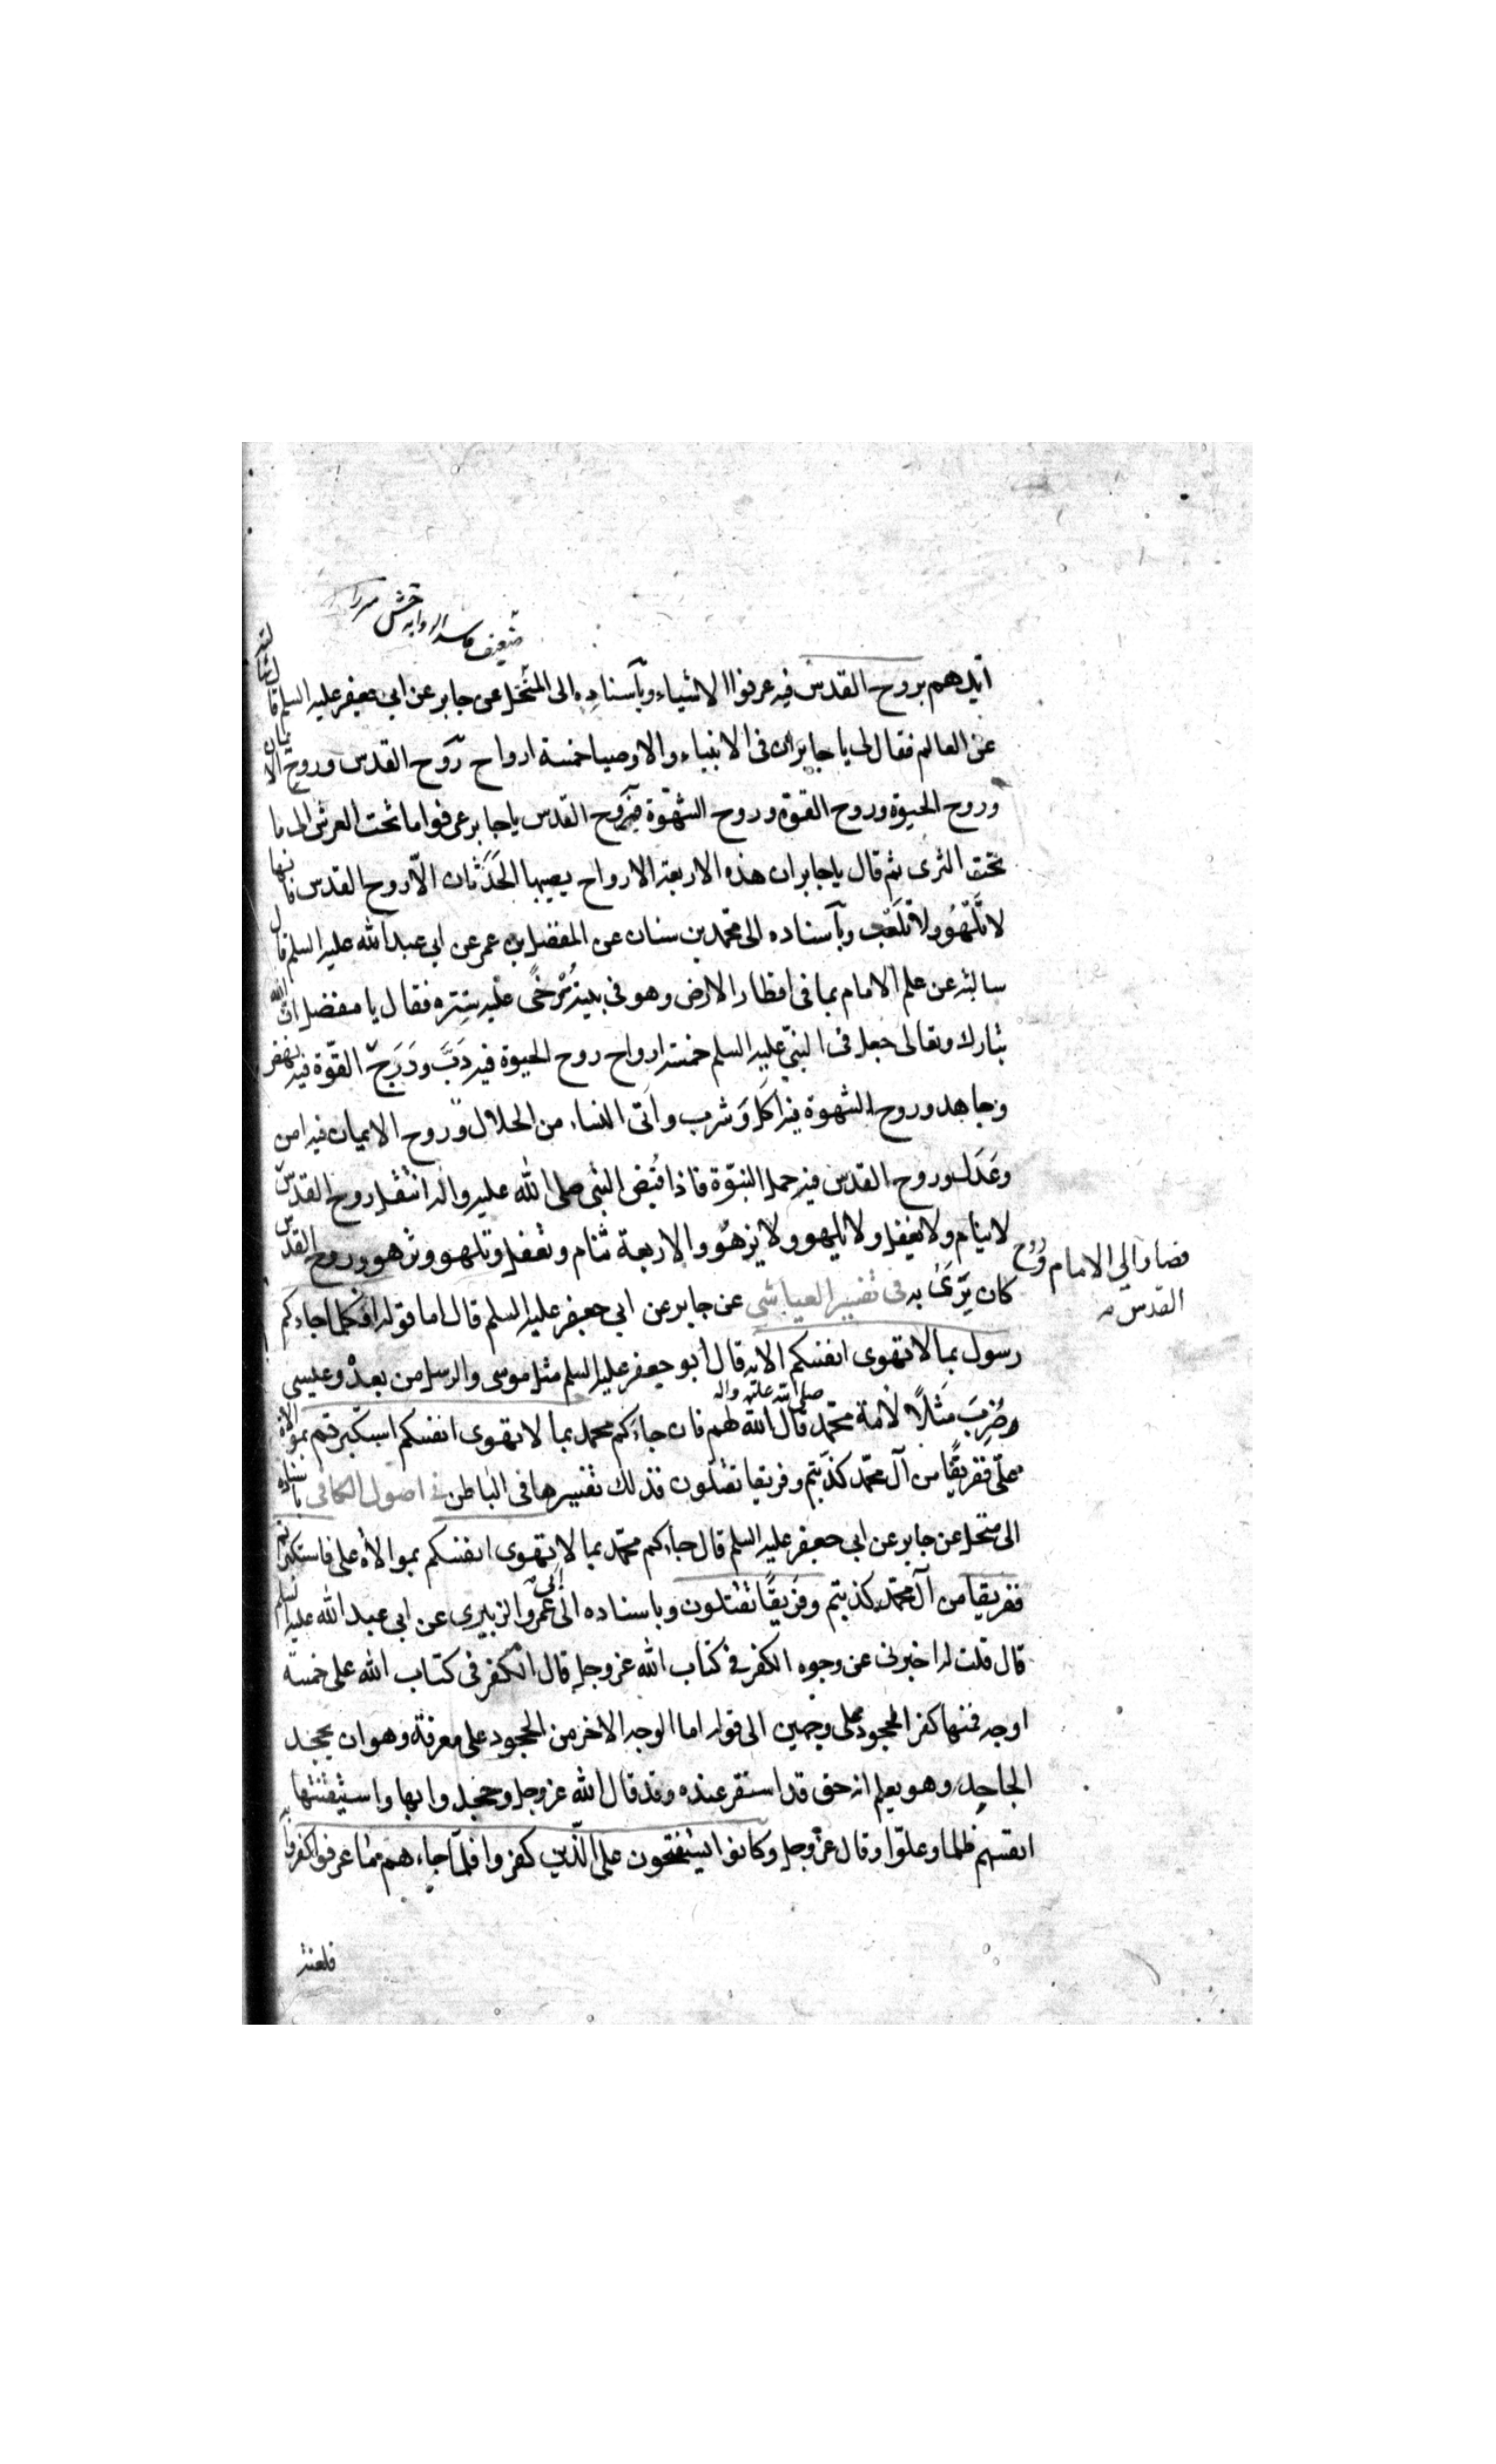 ضعيف فاسد الرواية
ايّدهم بروح القدس فبه عرفوا الاشياء وبآسناده الى المنخل عن جابر عن ابي جعفر عليه السلم قال سألته
عن العالم فقال لى يا جابر ان فى الانبياء والاوصيا خمسة ارواح روح القدس وروح الايمان
وروح الحيوة وروح القوة وروح الشهوة فبروح القدس يا جابر عرفوا ما تحت العرش الى ما
تحت الثرى ثم قال يا جابر ان هذه الاربعة الارواح يصيبها الحَدَثان الّا روح القدس فانها
لا تلهُو ولا تلعَب وبآسناده الى محمد بن سنان عن المفضل بن عمر عن ابي عبد الله عليه السلم قال
سالته عن علم الامام بما فى اقطار الارض وهو فى بيته مُرْخىً عليه سِتره فقال يا مفضل ان الله
تبارك وتعالى جعل فى النبيّ عليه السلم خمسة ارواح روح الحيوة فبه دَبَّ ودَرَجَ القوّة فبه نهض
وجاهد وروح الشهوة فبه اكل وَشرب واَتى النساء من الحلال وروح الايمان فبه امن
وعَدَل وروح القدس فبه حمل النبوّة فاذا قُبض النبي صلى الله عليه واله انتقل روح القدس
فصار الى الامام وروح
القدس
لا ينام ولا يغفل ولا يلهو ولا يزهو والاربعة تنام وتغفل وتلهو وتزهو وروح القدس
كان يَرَىٰ به فى تفسير العياشي عن جابر عن ابي جعفر عليه السلم قال اما قوله افكلما جاءكم
رسول بما لا تهوى انفسكم الاية قال ابو جعفر عليه السلم مثل موسى والرسل من بعدهْ وعيسى
صلى الله عليه واله
وضُرِبَ مَثلًا لأمة محمّد قال الله لهم فان جاءكم محمد بما لا تهوى انفسكم استكبرتم بموالاة
علىّ ففريقًا من آل محمّد كذّبتم وفريقا تقتلون فذلك تفسيرها فى الباطن فى اصول الكافى باسناده
الى منخل عن جابر عن ابي جعفر عليه السلم قال جاءكم محمّد بما لا تهوى انفسكم بموالاة على فاستكبرتم
ففريقا من آل محمّد كذبتم وفَريقًا تقتلون وباسناده الى ابي عمرو الزبيرى عن ابى عبد الله عليه السلم
قال قلت له اخبرنى عن وجوه الكفر فى كتاب الله عز وجل قال الكفر فى كتاب الله على خمسة
اوجه فمنها كفر الجحود على وجهين الى قوله اما الوجه الاخر من الجحود على معرفة وهو ان يجحد
الجاحد وهو يعلم انه حق قد استقر عنده وقد قال الله عز وجل وجحدوا بها واستيقنتها
انفسهم ظلما وعلوّا وقال عزّ وجل وكانوا يستفتحون على الّذين كفروا فلمّا جاءهم ما عرفوا كفروا به
فلعنة